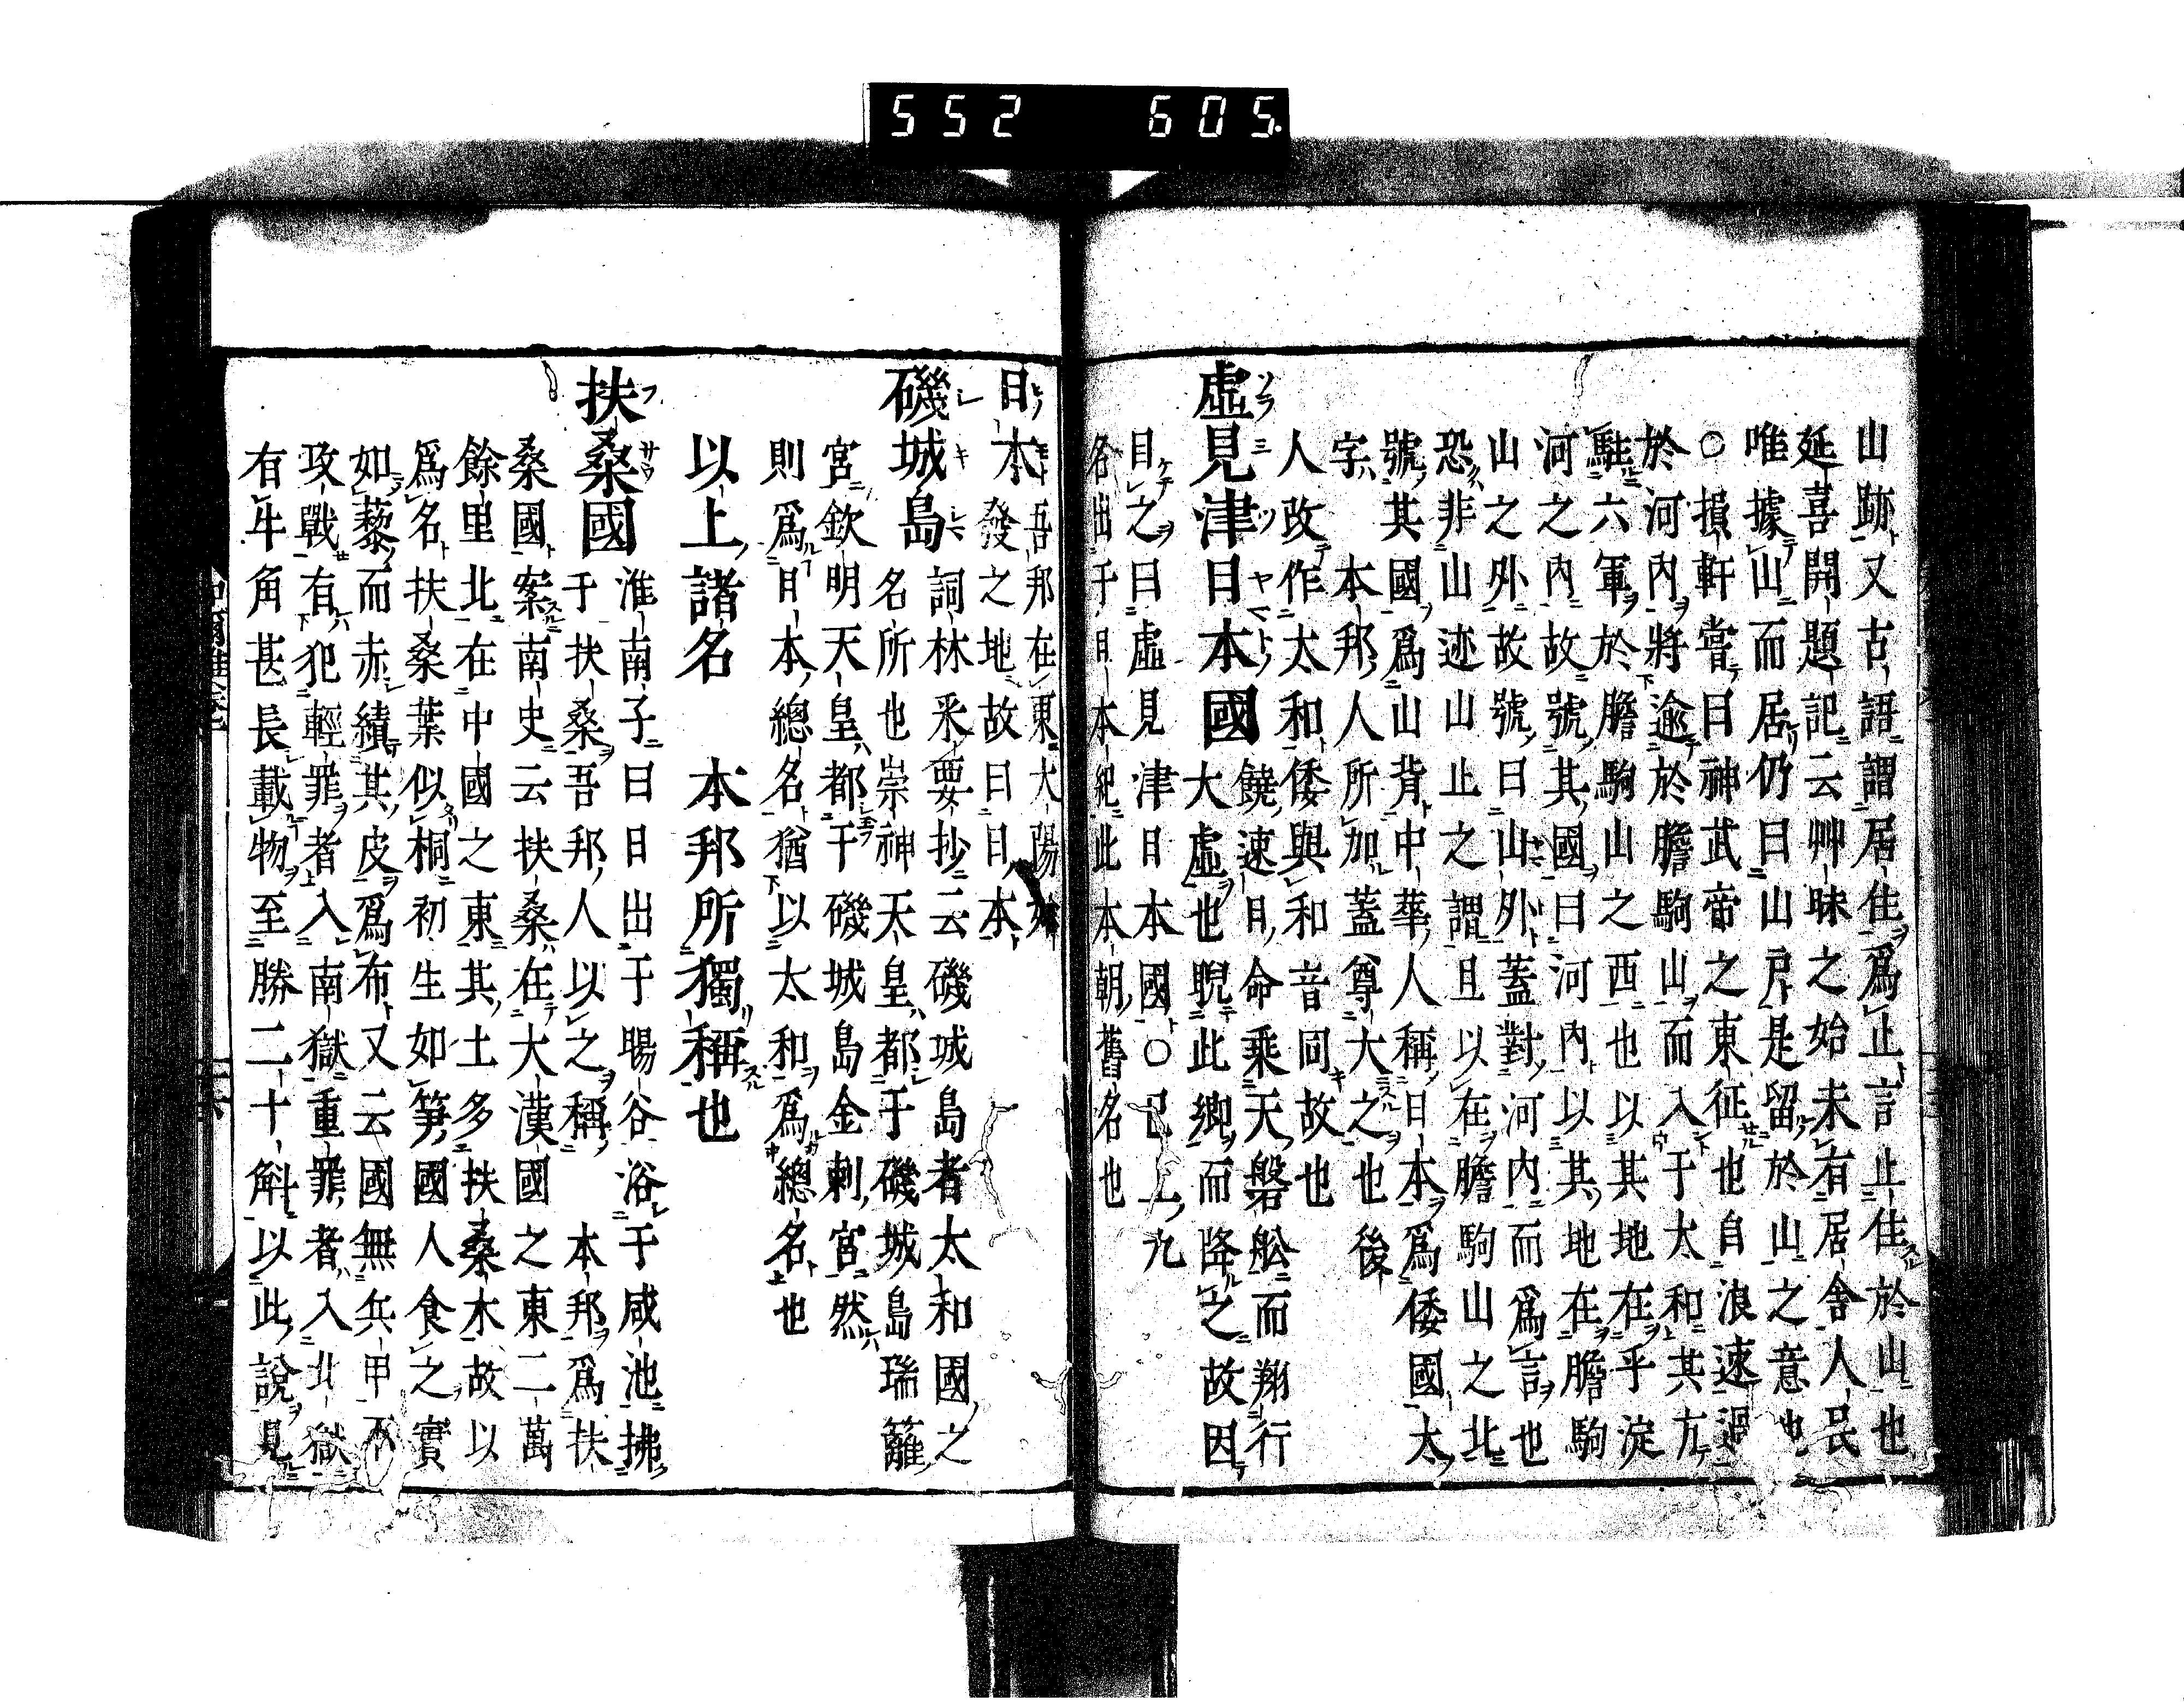 552 605.
山跡又古語謂居住爲止言止住於山也
延喜開題記云艸昧之始未有居舍人民
唯據山而居仍曰山戸是留於山之意也
○損軒嘗曰神武帝之東征也自浪速
於河内將逾於膽駒山而入于太和其方
駐六軍於膽駒山之西也以其地在乎淀
河之内故號其國曰河内以其地在膽駒
山之外故號曰山外蓋對河内而爲言也
恐非山迹山止之謂且以在膽駒山之北
號其國爲山背中華人稱日本爲倭國太
字本邦人所加蓋尊大之也後
人改作太和倭與和音同故也
虛見津日本國 饒速日命乘天磐船而翔行
大虛也睨此郷而降之故因
目之曰虛見津日本國○已上九
名出于日本紀此本朝舊名也
日本 吾邦在東大陽
發之地故曰日本
磯城島 詞林釆要抄云磯城島者太和國之
名所也崇神天皇都于磯城島瑞籬
宮欽明天皇都于磯城島金刺宮然
則爲日本總名猶以太和爲總名也
以上諸名 本邦所獨稱也
扶桑國 淮南子曰日出于暘谷浴于咸池拂
于扶桑吾邦人以之稱本邦爲扶
桑國案南史云扶桑在大漢國之東二萬
餘里北在中國之東其土多扶桑木故以
爲名扶桑葉似桐初生如笋國人食之實
如藜而赤績其皮爲布又云國無兵甲不
攻戰有犯輕罪者入南獄重罪者入北獄
有牛角甚長載物至勝二十斛以此説見